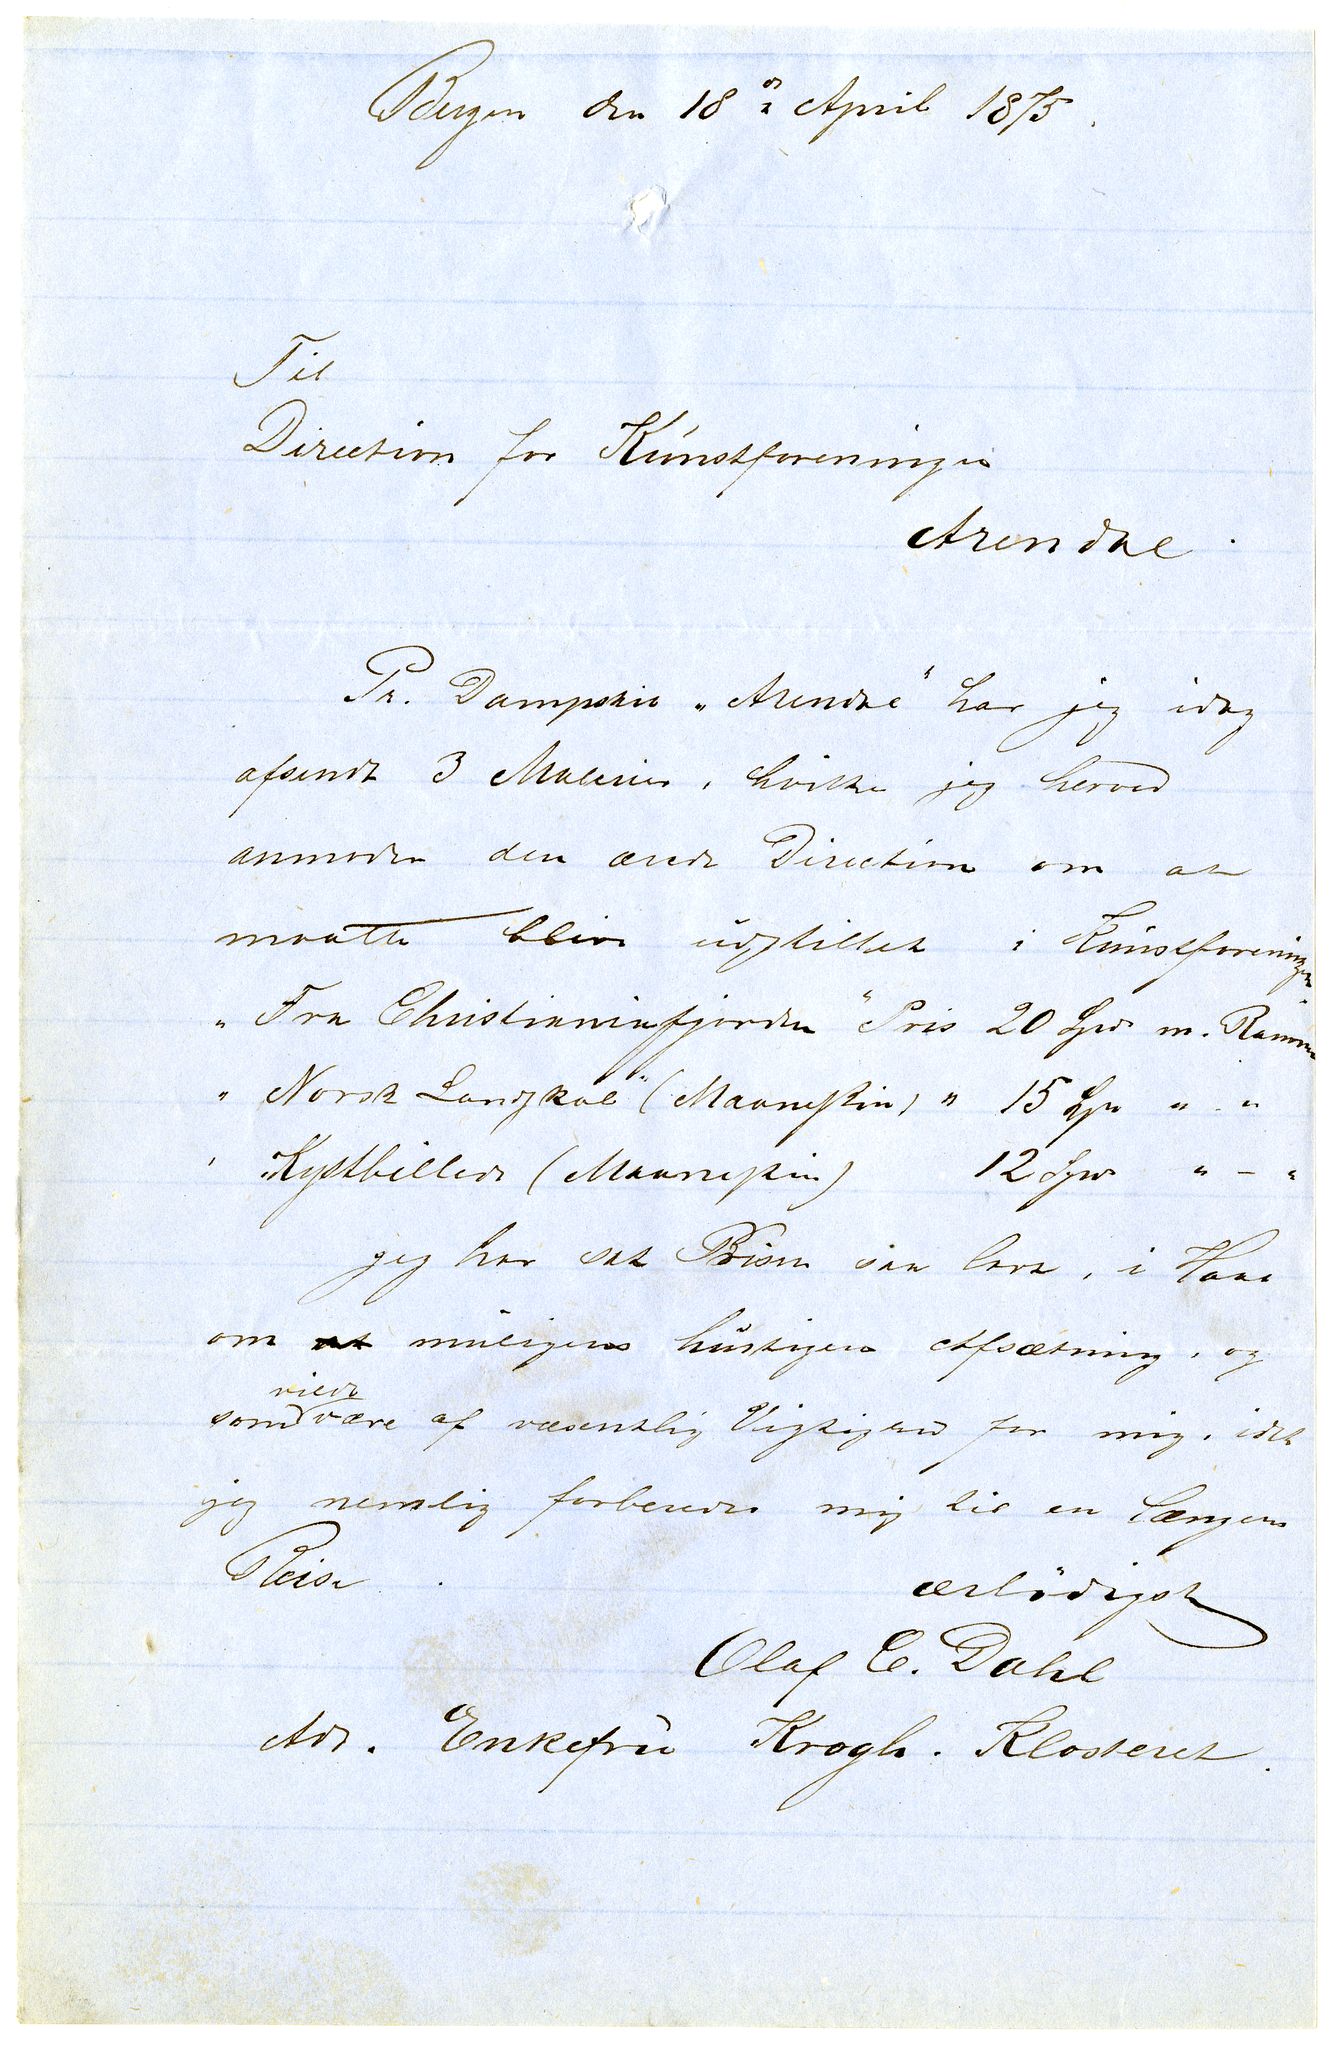 Bergen den 18de April 1875.
Til
Direction for Kunstforeningen
Arendal.
Pr. Dampskib „Arendal" har jeg idag
afsendt 3 Malerier, hvilke jeg herved
anmoder den ærede Direction om at
maatte blive udstillet i Kunstforeningen
„Fra Christianiafjorden" Pris 20 Spd m. Ramme
„Norsk Landskab" (Maaneskin) " 15 Spd " - "
"Kystbillede (Maaneskin) 12 Spd " - "
jeg har sat Prisen saa lavt, i Haab
om at muligens hurtigere Afsætning, og
som vilde være af væsentlig Vigtighed for mig, idet
jeg nemlig forbereder mig til en længere
Reise.
ærbödigst
Olaf C. Dahl
Adr. Enkefru Krogh. Klosteret.